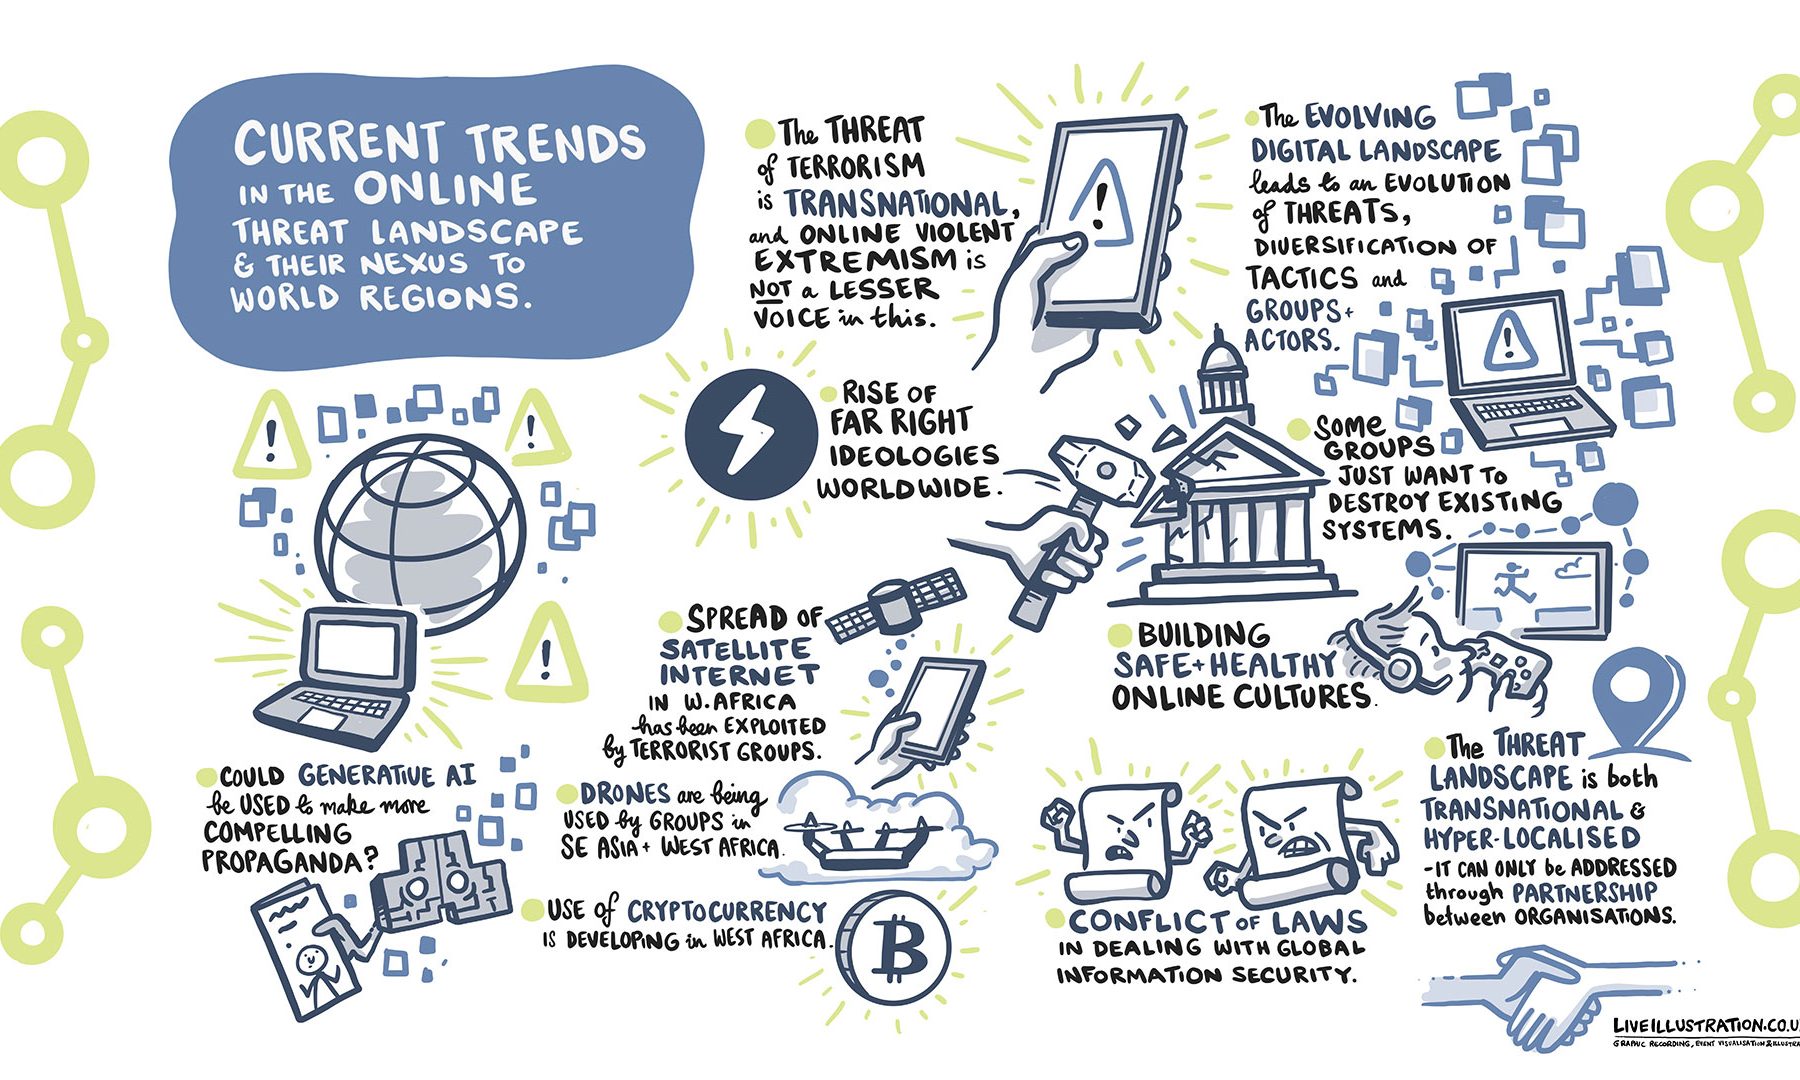 CURRENT TRENDS
IN THE ONLINE
THREAT LANDSCAPE
& THEIR NEXUS TO
WORLD REGIONS.
The THREAT
of TERRORISM
is TRANSNATIONAL,
and ONLINE VIOLENT
EXTREMISM is
NOT a LESSER
VOICE in this.
The EVOLVING
DIGITAL LANDSCAPE
leads to an EVOLUTION
of THREATS,
DIVERSIFICATION OF
TACTICS and
GROUPS +
ACTORS.
RISE OF
FAR RIGHT
IDEOLOGIES
WORLDWIDE.
SOME
GROUPS
JUST WANT TO
DESTROY EXISTING
SYSTEMS.
SPREAD OF
SATELLITE
INTERNET
IN W. AFRICA
has been EXPLOITED
by TERRORIST GROUPS.
BUILDING
SAFE + HEALTHY
ONLINE CULTURES.
COULD GENERATIVE AI
be USED to make more
COMPELLING
PROPAGANDA?
DRONES are being
USED by GROUPS in
SE ASIA + WEST AFRICA.
USE of CRYPTOCURRENCY
IS DEVELOPING in WEST AFRICA.
B
CONFLICT OF LAWS
IN DEALING WITH GLOBAL
INFORMATION SECURITY.
The THREAT
LANDSCAPE is both
TRANSNATIONAL &
HYPER-LOCALISED
- IT CAN ONLY be ADDRESSED
through PARTNERSHIP
between ORGANISATIONS.
LIVEILLUSTRATION.CO.U
GRAPHIC RECORDING, EVENT VISUALISATION & ILLUSTRA